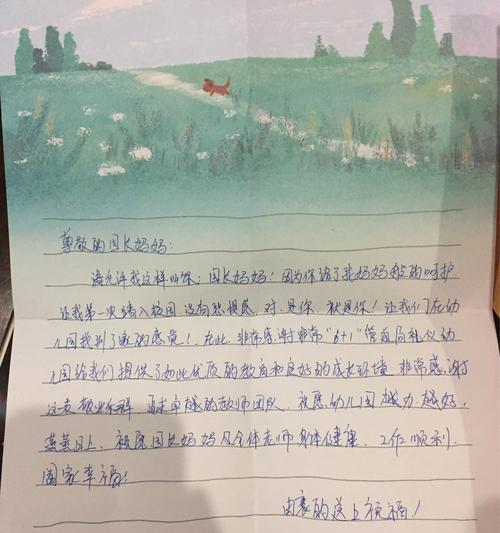 尊敬的园长妈妈:
请允许我这样叫你:园长妈妈!因为你给了我妈妈般的呵护
让我第一次踏入校园没有恐惧感,对,是你,就是你!让我们在幼
儿园找到了家的感觉!在此,非常感谢非常"6+1"管庄局礼仪幼
儿园给我们提供了如此优质的教育和良好的成长环境,非常感谢
这支敬业乐群、追求卓越的教师团队,祝愿幼儿园越办越好,
蒸蒸日上,祝愿园长妈妈及全体老师身体健康,工作顺利,
阖家幸福!
由衷的送上祝福!